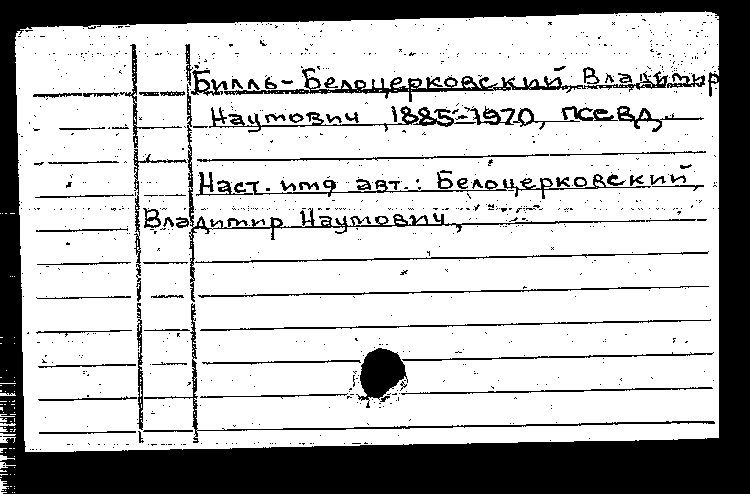 Билль-Белоцерковский, Владимир
Наумович, 1885-1970, псевд.
Наст. имя авт.: Белоцерковский,
Владимир Наумович,